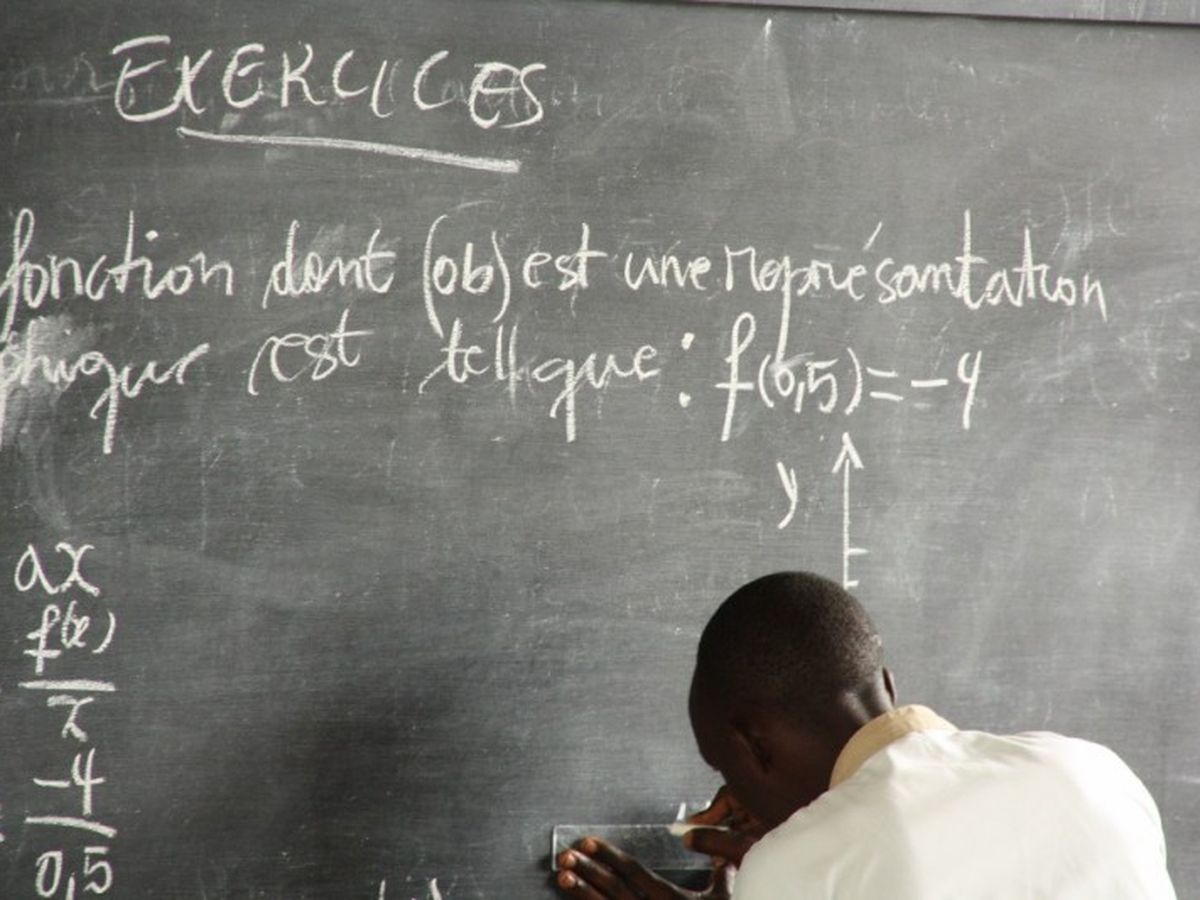 EXERCICES
fonction dont (ob) est une représantation
phique est tell que : f(0,5) = -4
y
ax
f(x)
x
-4
0,5